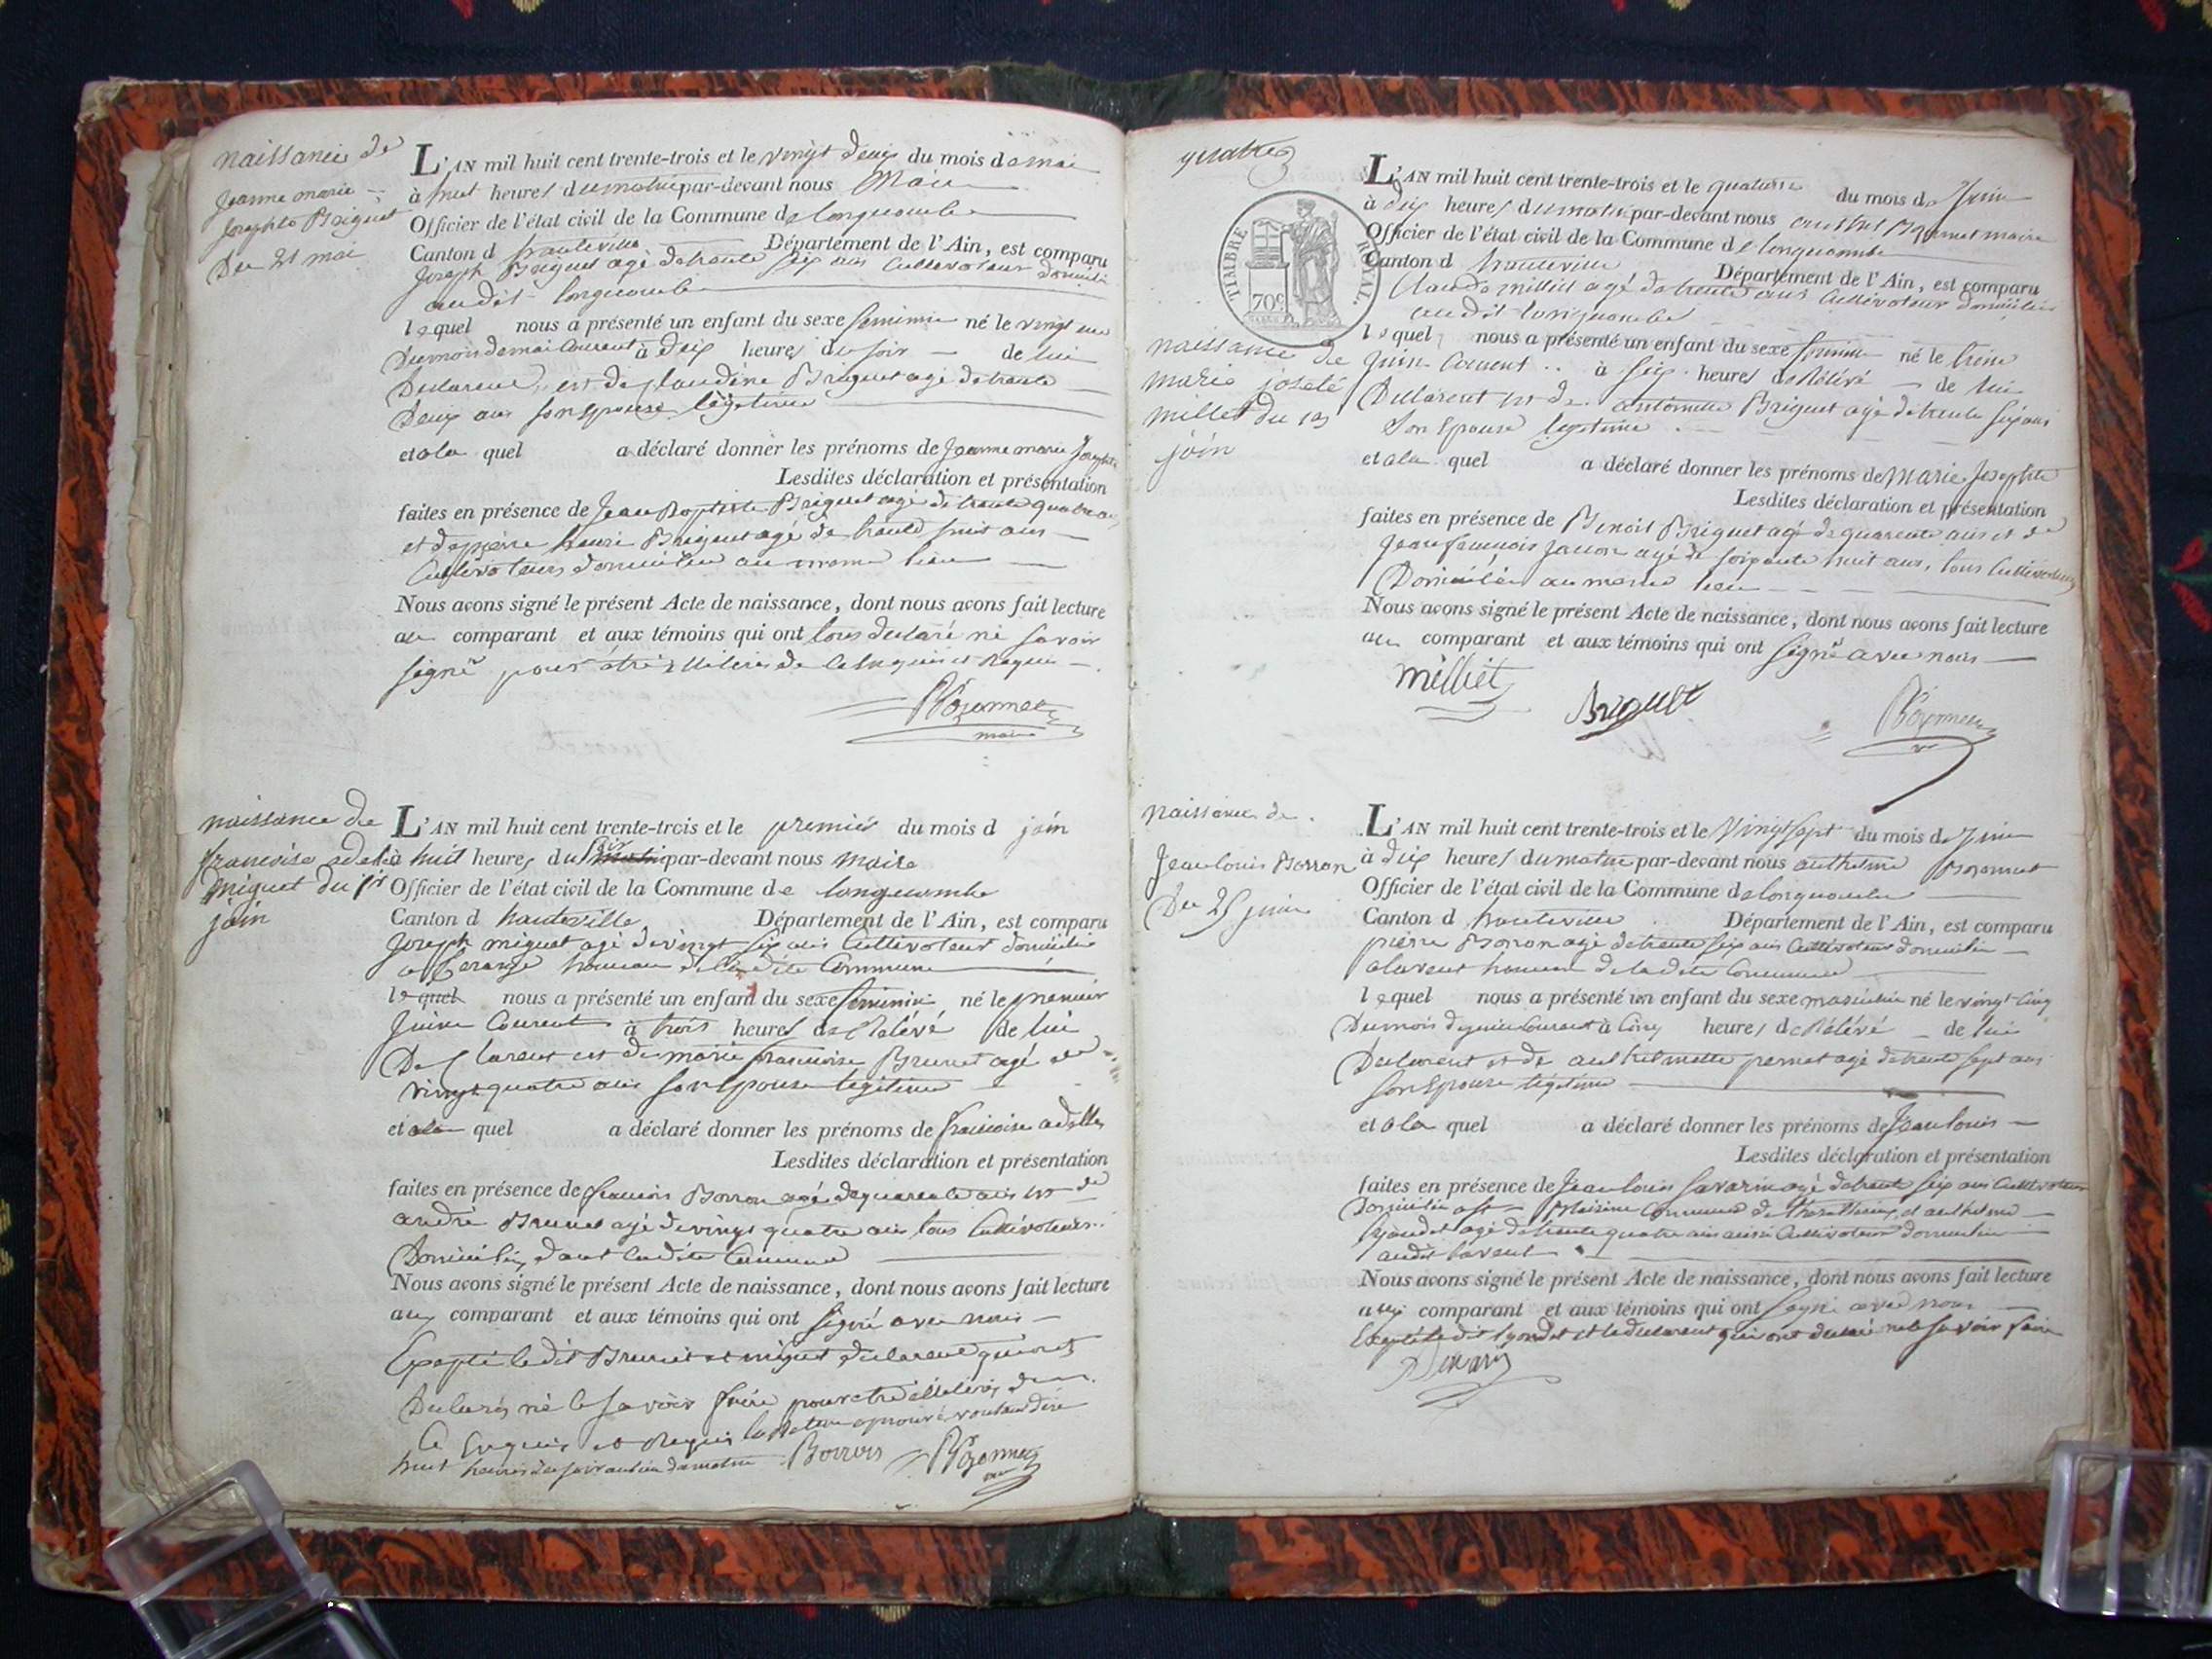 naissance de
jeanne marie
josephte Briguet
Du 21 mai
L'AN mil huit cent trente-trois et le vingt deux du mois de mai
à huit heures du matin par-devant nous Maire
Officier de l'état civil de la Commune de longecombe
Canton d hauteville Département de l'Ain, est comparu
Joseph Briguet agé de trente six ans Cultivateur domicilié
audit longecombe
lequel nous a présenté un enfant du sexe feminin né le vingt un
Du mois de mai Courant à dix heures du soir de lui
Declarent, et de Claudine Briguet agé de trente
Deux ans son Epouse légitime
et ala quel a déclaré donner les prénoms de Jeanne marie Josephte
Lesdites déclaration et présentation
faites en présence de Jean Baptiste Briguet agé de trente quatre ans
et de pierre henri Briguet agé de trente huit ans
Cultivateurs domiciliés au meme lieu
Nous avons signé le présent Acte de naissance, dont nous avons fait lecture
au comparant et aux témoins qui ont tous declaré ne savoir
signer pour être illiterés de ce enquis et Requis
Bozonnet
maire
naissance de
francoise adele
miguet du 1er
juin
L'AN mil huit cent trente-trois et le premier du mois d juin
à huit heures du soir par-devant nous maire
Officier de l'état civil de la Commune de longecombe
Canton d hauteville Département de l'Ain, est comparu
Joseph miguet agé de vingt six ans Cultivateur domicilié
hameau de ladite Commune
lequel nous a présenté un enfant du sexe feminin né le premier
Juin Courant à trois heures de Relévé de lui
Declarent et de marie francoise Brunet agé de
vingt quatre ans son Epouse legitime
et ala quel a déclaré donner les prénoms de francoise adelle
Lesdites déclaration et présentation
faites en présence de francois Borron agé de quarente ans et de
andré Brunet agé de vingt quatre ans tous Cultivateurs
Domiciliés dans ladite Commune
Nous avons signé le présent Acte de naissance, dont nous avons fait lecture
aux comparant et aux témoins qui ont signé avec nous
Excepté ledit Brunet et miguet declarent qui ont
Declarés ne le savoir faire pour etre illiterés de
Ce Enquis et Requis la Rature aprouvé voulant dire
huit heures du soir au lieu du matin Borron Bozonnet
quatre
TIMBRE ROYAL.
70c
L'AN mil huit cent trente-trois et le quatorze du mois de Juin
à dix heures du matin par-devant nous anthelme Bozonnet maire
Officier de l'état civil de la Commune de longecombe
Canton d hauteville Département de l'Ain, est comparu
Claude milliet agé de trente ans Cultivateur domicilié
audit longecombe
naissance de
marie joseté
milliet du 13
juin
lequel nous a présenté un enfant du sexe feminin né le treize
Juin Courent à six heures de Rélévé de lui
Declarent et de antoinette Briguet agé de trente six ans
Son Epouse legitime
et ala quel a déclaré donner les prénoms de Marie Josephte
Lesdites déclaration et présentation
faites en présence de Benoit Briguet agé de quarente ans et de
Jean francois agé de soixante huit ans, tous Cultivateurs
Domiciliés au meme lieu
Nous avons signé le présent Acte de naissance, dont nous avons fait lecture
au comparant et aux témoins qui ont signé avec nous
Milliet Briguet Bozonnet
naissance de
Jean louis Borron
Du 25 juin
L'AN mil huit cent trente-trois et le Vingt sept du mois de Juin
à dix heures du matin par-devant nous anthelme Bozonnet
Officier de l'état civil de la Commune de longecombe
Canton d hauteville Département de l'Ain, est comparu
pierre Borron agé de trente six ans Cultivateur domicilié
a lavent hameau de ladite Commune
lequel nous a présenté un enfant du sexe masculin né le vingt-Cinq
Du mois de juin Courant à Cinq heures de Rélévé de lui
Declarent et de anthelmette pernet agé de trente sept ans
son Epouse légitime
et ala quel a déclaré donner les prénoms de Jean louis
Lesdites déclaration et présentation
faites en présence de Jean louis Savarin agé de trente six ans Cultivateur
Domicilié Commune de et anthelme
lyaudet agé de trente quatre ans aussi Cultivateur domicilié
audit lavent
Nous avons signé le présent Acte de naissance, dont nous avons fait lecture
aux comparant et aux témoins qui ont signé avec nous
Excepté ledit lyaudet et le declarent qui ont declaré ne le savoir faire